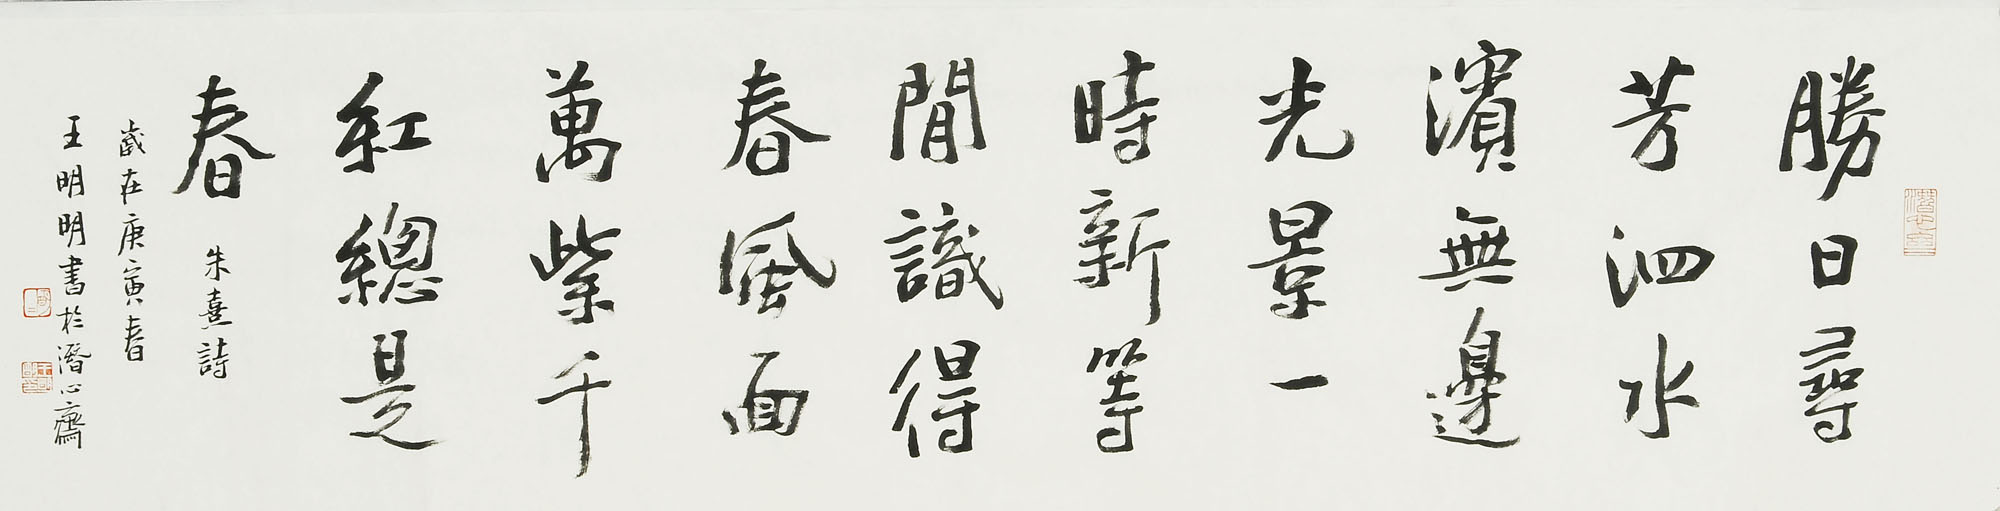 勝日尋
芳泗水
濱無邊
光景一
時新等
閒識得
春風面
萬紫千
紅總是
春
朱熹詩
歲在庚寅春
王明明書於潛心齋